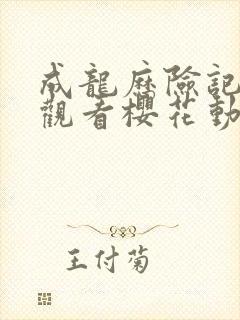 成龍歷險記
觀看櫻花動
王付菊